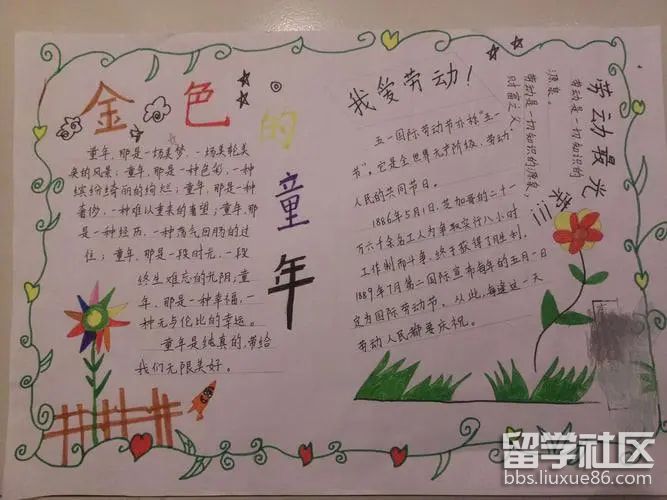 金色的童年
童年,那是一场美梦,一场美轮美
奂的风景;童年,那是一种色彩,一种
缤纷绮丽的绚烂;童年,那是一种
奢侈,一种难以重来的奢望;童年,那
是一种经历,一种荡气回肠的过
往;童年,那是一段时光,一段
终生难忘的光阴;童
年,那是一种幸福,一
种无与伦比的幸运。
童年是纯真的,带给
我们无限美好。
我爱劳动!
五一国际劳动节亦称"五一
节"。它是全世界无产阶级、劳动
人民的共同节日。
1886年5月1日,芝加哥的二十一
万六千余名工人为争取实行八小时
工作制而斗争,终于获得了胜利,
1889年7月第二国际宣布每年的五月一日
定为国际劳动节。从此,每逢这一天
劳动人民都要庆祝。
劳动最光
荣!!!
劳动是一切知识的
源泉。
劳动是一切知识的源泉,
财富之父
留学社区
bbs.liuxue86.com